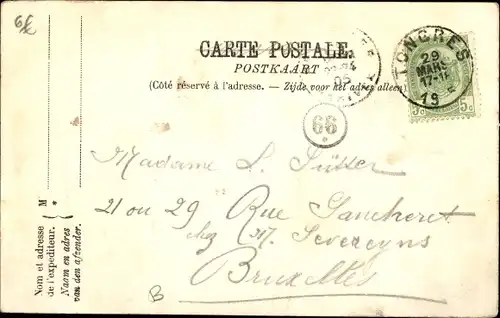 6/
CARTE POSTALE.
POSTKAART
(Côté réservé à l'adresse. — Zijde voor het adres alleen)
TONGRES
29
MARS
17-18
19 5
5c 5c
66
Madame L. Sutter
21 ou 29 Rue Gancheret
chez M. Severeyns
Bruxelles
B
M
*
Nom et adresse
de l'expéditeur.
Naam en adres
van den afzender.